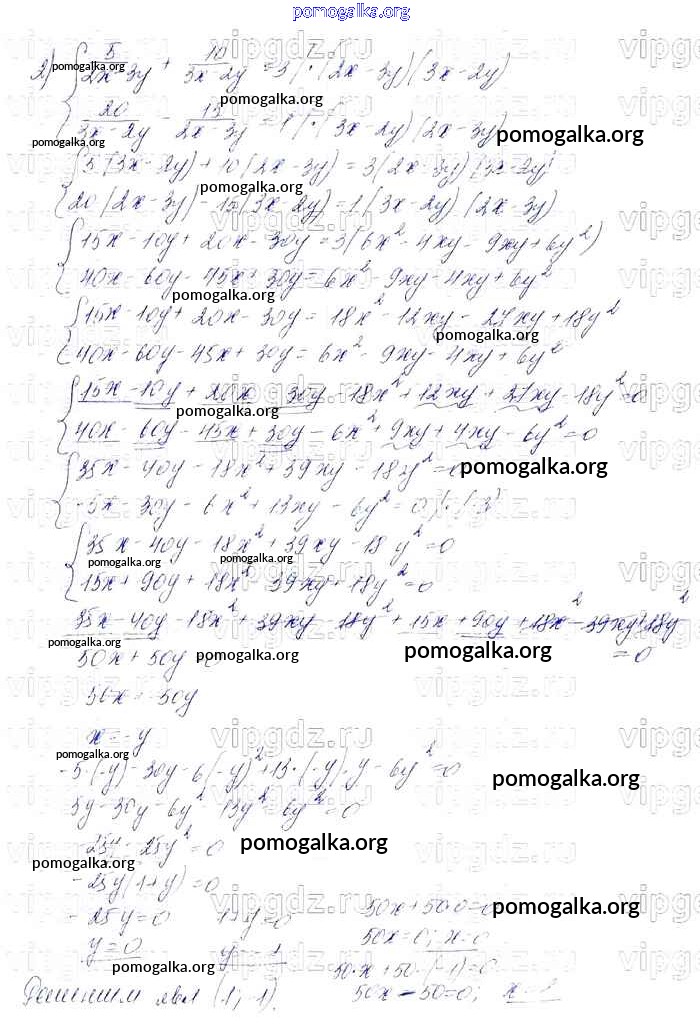 pomogalka.org
2) { 5/(2x-3y) + 10/(3x-2y) = 3 | · (2x-3y)(3x-2y)
20/(3x-2y) - 15/(2x-3y) = 1 | · (3x-2y)(2x-3y)
{ 5(3x-2y) + 10(2x-3y) = 3(2x-3y)(3x-2y)
20(2x-3y) - 15(3x-2y) = 1(3x-2y)(2x-3y)
{ 15x-10y+20x-30y=3(6x²-4xy-9xy+6y²)
40x-60y-45x+30y=6x²-9xy-4xy+6y²
{ 15x-10y+20x-30y=18x²-12xy-27xy+18y²
40x-60y-45x+30y=6x²-9xy-4xy+6y²
{ 15x-10y+20x-30y-18x²+12xy+27xy-18y²=0
40x-60y-45x+30y-6x²+9xy+4xy-6y²=0
{ 35x-40y-18x²+39xy-18y²=0
-5x-30y-6x²+13xy-6y²=0 | · (-3)
{ 35x-40y-18x²+39xy-18y²=0
15x+90y+18x²-39xy+18y²=0
35x-40y-18x²+39xy-18y²+15x+90y+18x²-39xy+18y²
=0
50x+50y
50x=-50y
x=-y
-5·(-y)-30y-6(-y)²+13·(-y)·y-6y²=0
5y-30y-6y²-13y²-6y²=0
-25y-25y²=0
-25y(1+y)=0
-25y=0 1+y=0 50x+50·0=0
y=0 y=-1 50x=0; x=0
50·x+50·(-1)=0
Решением явл (1;-1). 50x-50=0; x=1
pomogalka.org
vipgdz.ru